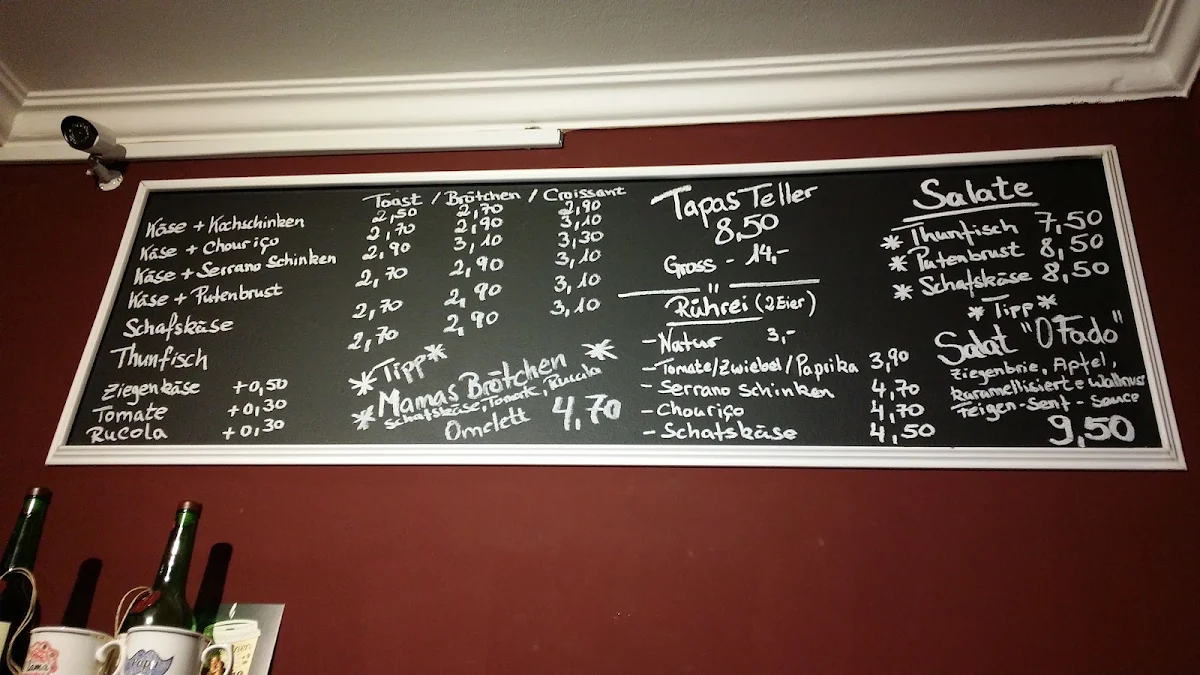 Toast / Brötchen / Croissant
Käse + Kochschinken 2,50 2,70 2,90
Käse + Chouriço 2,70 2,90 3,10
Käse + Serrano Schinken 2,90 3,10 3,30
Käse + Putenbrust 2,70 2,90 3,10
Schafskäse 2,70 2,90 3,10
Thunfisch 2,70 2,90 3,10
Ziegenkäse +0,50
Tomate +0,30
Rucola +0,30
*Tipp*
*Mamas Brötchen*
Schafskäse, Tomate, Rucola
Omelett 4,70
Tapas Teller
8,50
Gross - 14,-
Rührei (2 Eier)
- Natur 3,-
- Tomate/Zwiebel/Paprika 3,90
- Serrano Schinken 4,70
- Chouriço 4,70
- Schafskäse 4,50
Salate
* Thunfisch 7,50
* Putenbrust 8,50
* Schafskäse 8,50
*Tipp*
Salat "O Fado"
Ziegenbrie, Apfel,
karamellisierte Walnuss
Feigen-Senf-Sauce
9,50
Mama
Papa